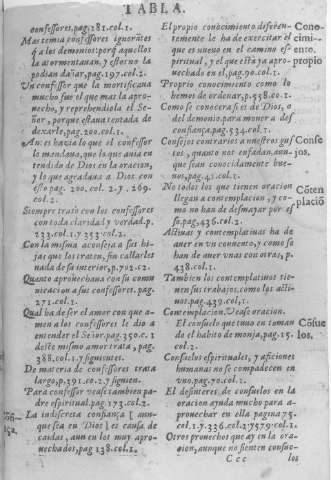 TABLA.
confessores, pag. 281. col. 1.
Mas temia confessores ignorātes
q̄ a los demonios: porq̄ aquellos
la atormentauan, y estos no la
podian dañar, pag. 197. col. 2.
Vn confessor que la mortificaua
mucho fue el que mas la apro-
uecho, y reprehendiola el Se-
ñor, porque estaua tentada de
dexarle, pag. 200. col. 1.
Aun es hazia lo que el confessor
le mandaua, que lo que auia en
tendido de Dios en la oracion,
y lo que agradaua a Dios con
esto pag. 200. col. 2. y. 269.
col. 2.
Siempre trato con los confessores
con toda claridad y verdad. p.
233. col. 1. y 352. col. 2.
Con la misma aconseja a sus hi-
jas que los traten, sin callarles
nada de su interior, p. 702. c. 2.
Quanto aprouechaua con la comu
nicacion a sus confessores. pag.
271. col. 1.
Qual ha de ser el amor con que a-
men a los confessores le dio a
entender el Señor. pag. 350. c. 1
deste mismo amor trata, pag.
388. col. 1. y siguientes.
De materia de confessores trata
largo, p. 391. co. 2. y siguien.
Para confessor vease tambien pa-
dre espiritual. pag. 173. col. 2.
La indiscreta confiança [ aun-
que sea en Dios ] es causa de
caidas, aun en los muy apro-
uechados, pag 138. col. 1.
El propio conocimiento diferen-
temente le ha de exercitar el
que es nueuo en el camino es-
piritual, y el que està ya apro-
uechado en el, pag. 90. col. 1.
Conocimiento propio
Proprio conocimiento como lo
hemos de ordenar, p. 538. co. 1.
Como se conocera si es de Dios, o
del demonio para mouer a des
confiança, pag. 534. col. 1.
Consejos contrarios a nuestros gus/
tos, quanto nos enfadan, aun-
que sean conocidamente bue-
nos, pag. 41. col. 1.
No todos los que tienen oracion
llegan a contemplacion, y co-
mo no han de desmayar por es
so. pag, 436. col. 2.
Cōtemplaciō
Actiuas y contemplatiuas ha de
auer en vn conuento, y como se
han de auer vnas con otras, p.
438. col. 1.
Tambien los contemplatiuos tie-
nen sus trabajos, como los acti-
uos. pag. 439. col. 1.
Contemplacion. Vease oracion.
El consuelo que tuuo en tomar
el habito de monja, pag. 15.
col. 2.
Cōsuelos.
Consuelos espirituales, y aficiones
humanas no se compadecen en
vno. pag. 70. col. 2.
El desinteres de consuelos en la
oracion ayuda mucho para a-
prouechar en ella pagina 75.
col. 1. y. 336. col. 2. y 579. col. 1.
Otros prouechos que ay en la ora-
cion, aunque no sienten consue-
Ccc los